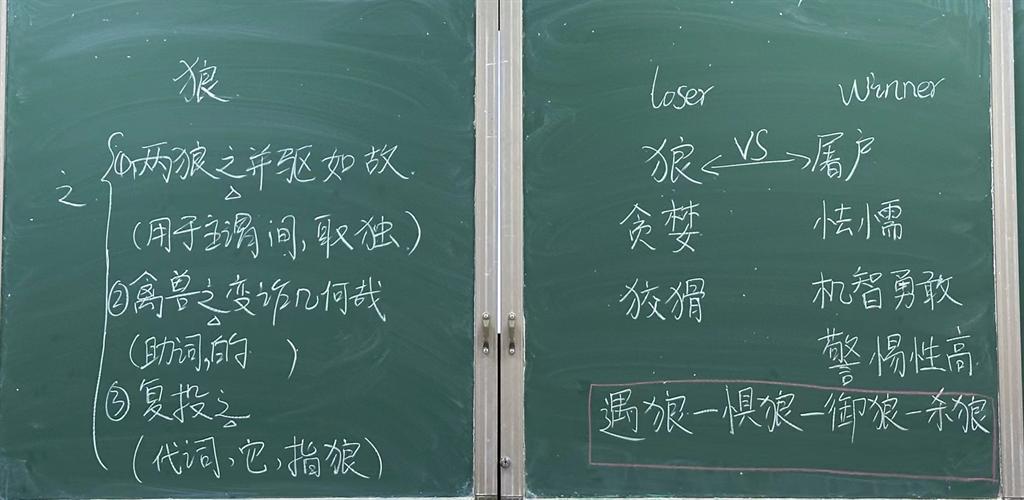 狼
之
①两狼之并驱如故
(用于主谓间,取独.)
②禽兽之变诈几何哉
(助词,的 )
③复投之
(代词,它,指狼)
loser winner
狼 VS 屠户
贪婪 怯懦
狡猾 机智勇敢
警惕性高
遇狼-惧狼-御狼-杀狼